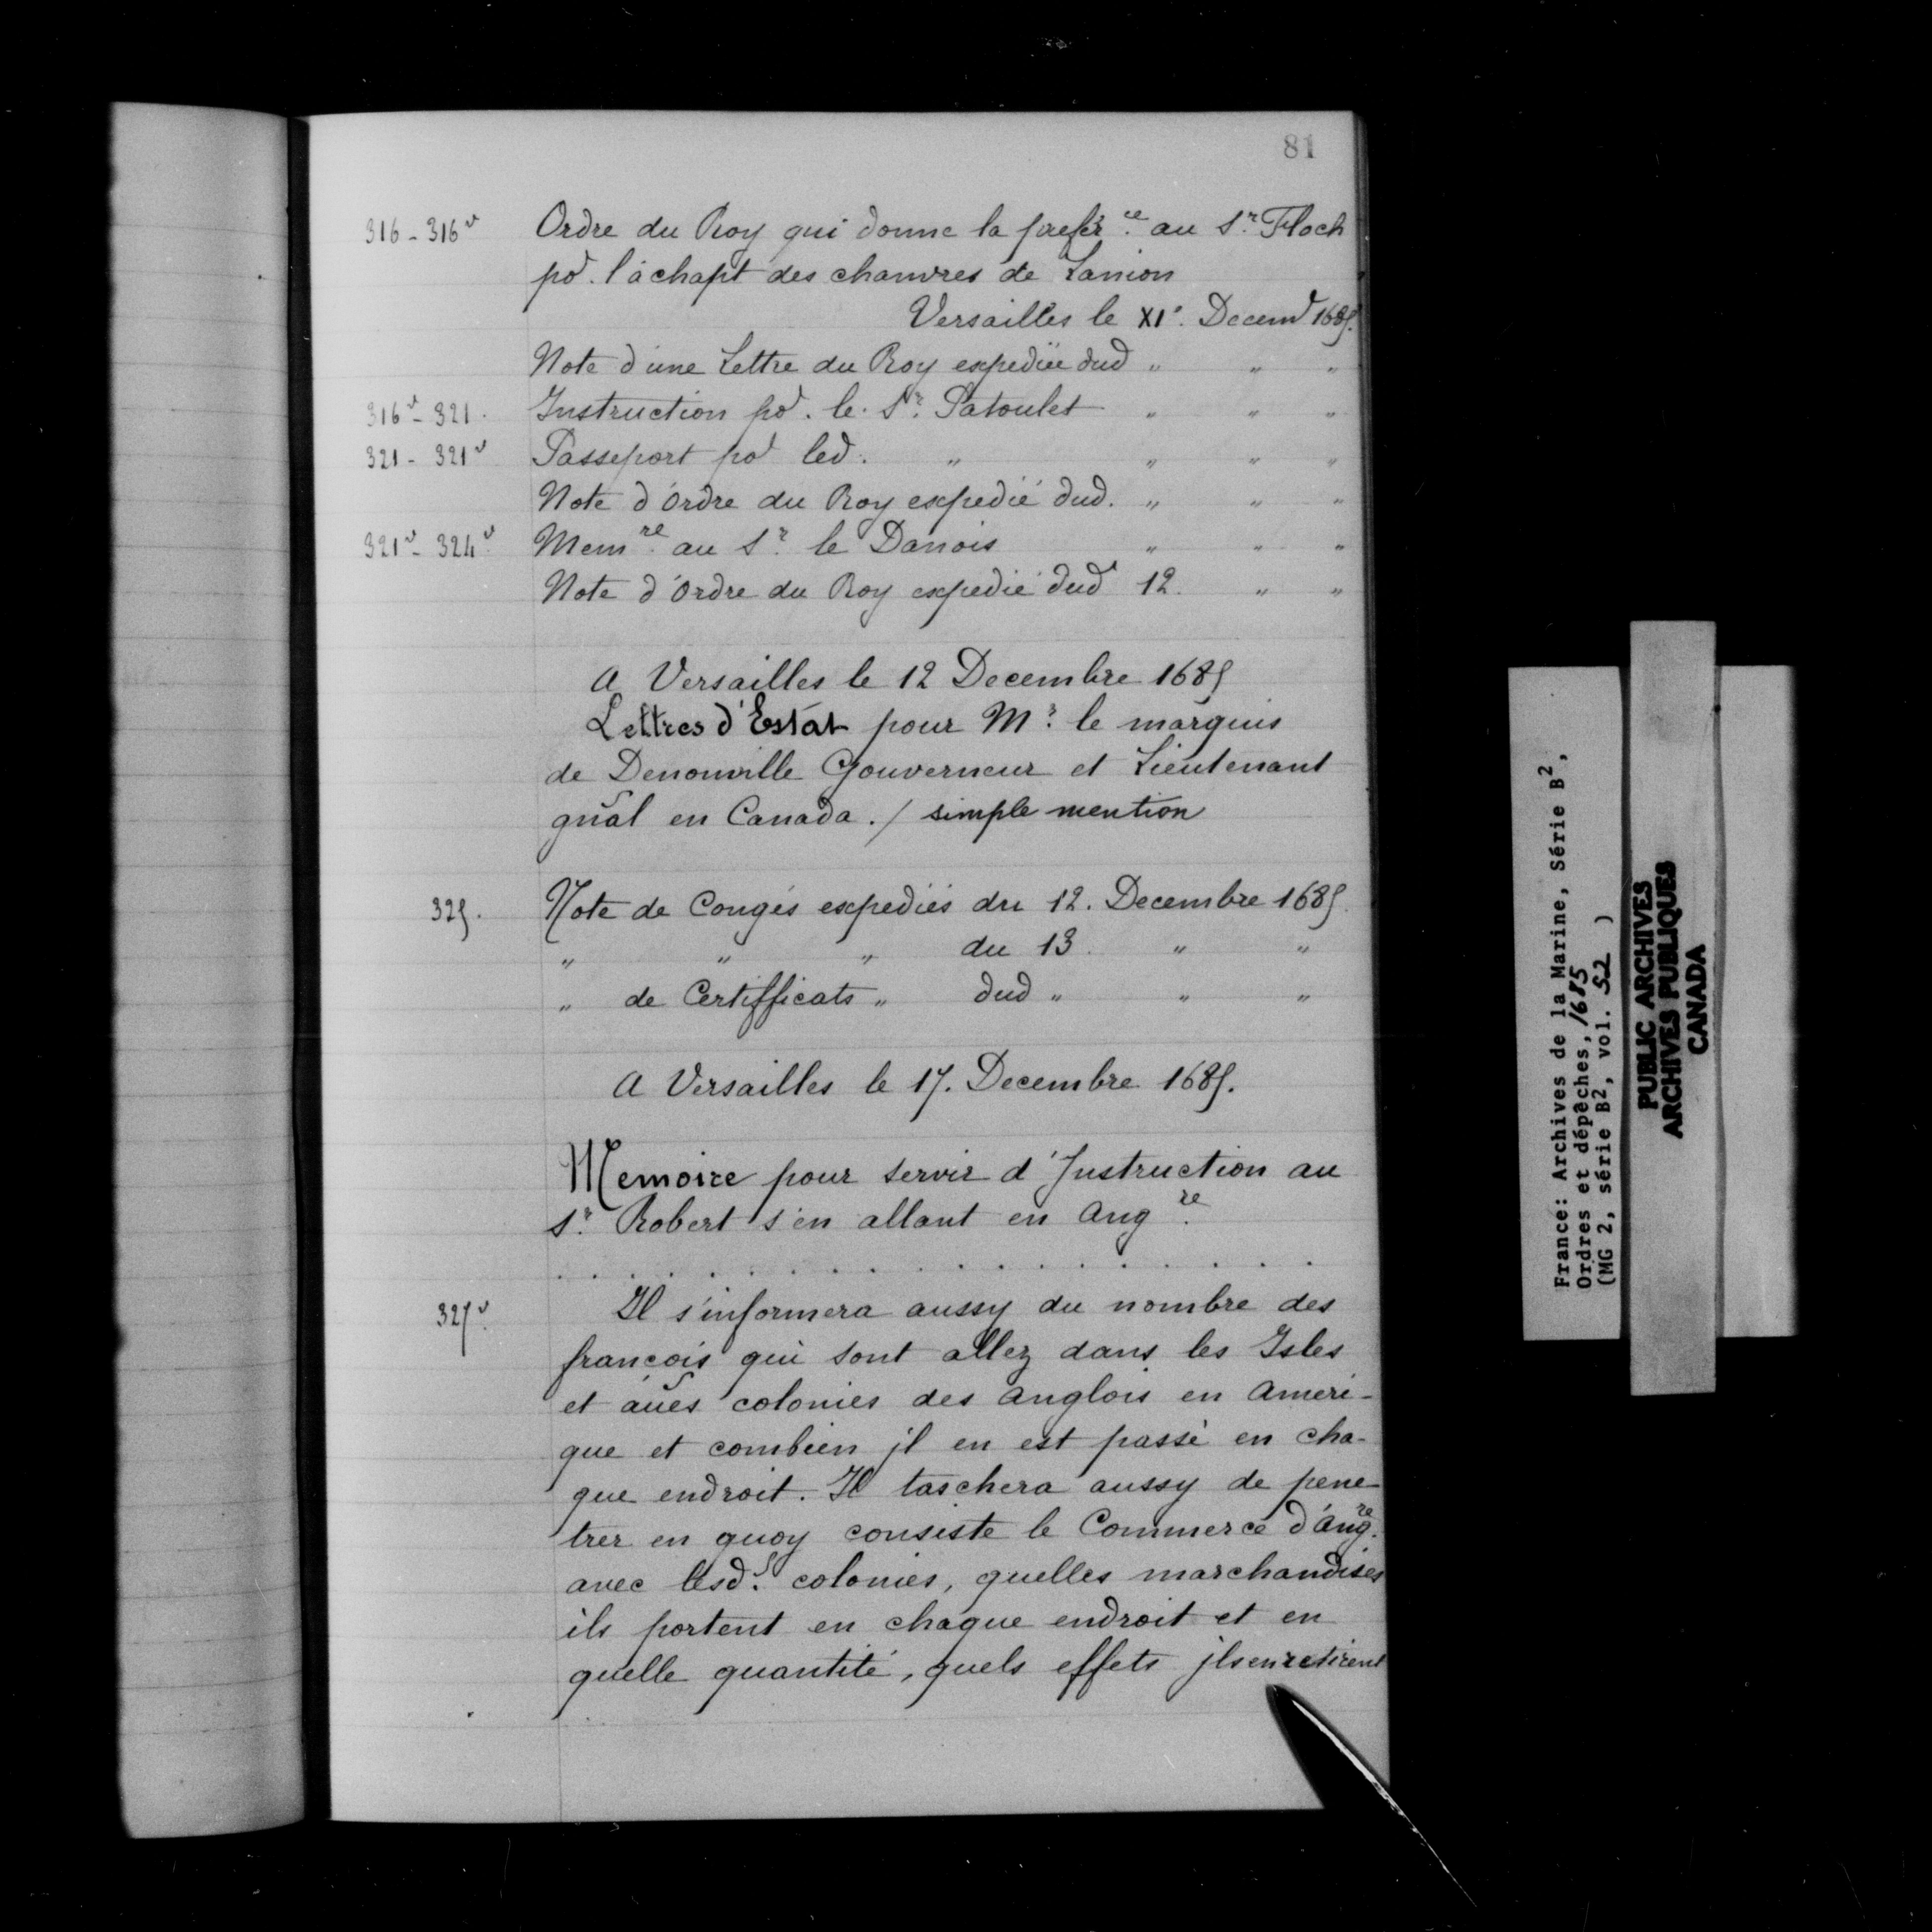 81
316 - 316v Ordre du Roy qui donne la prefér.ce au Sr. Floch
por. l'achapt des chanvres de Lanion
Versailles le XIe. Decemr 1685.
Note d'une Lettre du Roy expediée dud " " "
316v - 321. Instruction por. le. Sr. Patoulet " " "
321 - 321v Passeport por led. " " " "
Note d'Ordre du Roy expedié dud. " " "
321v - 324v Memre. au Sr. le Danois " " "
Note d'Ordre du Roy expedié dud 12. " "
A Versailles le 12 Decembre 1685
Lettres d'Estat pour Mr. le marquis
de Denonville Gouverneur et Lieutenant
gñal en Canada. / simple mention
325. Note de Congés expediés du 12. Decembre 1685.
" " " du 13. " "
" de Certifficats " dud " " "
A Versailles le 17. Decembre 1685.
Memoire pour servir d'Instruction au
Sr. Robert s'en allant en Angre.
. . . . . . . . . . . . . . . . . . .
327v. Il s'informera aussy du nombre des
françois qui sont allez dans les Isles
et aũes colonies des Anglois en Ameri-
que et combien jl en est passé en cha-
que endroit. Il taschera aussy de pene-
trer en quoy consiste le Commerce d'Angre.
avec lesds. colonies, quelles marchandises
ils portent en chaque endroit et en
quelle quantité, quels effets jls en retirent
France: Archives de la Marine, Série B2,
Ordres et dépêches, 1685
(MG 2, série B2, vol. 52 )
PUBLIC ARCHIVES
ARCHIVES PUBLIQUES
CANADA